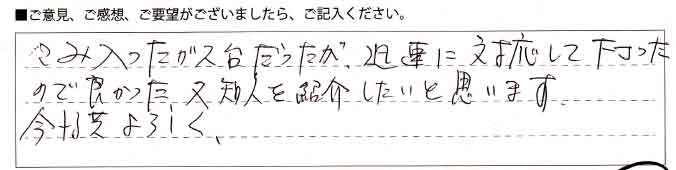 ■ご意見、ご感想、ご要望がございましたら、ご記入ください。
込み入ったガス台だったが、迅速に対応して下さった
ので良かった、又知人を紹介したいと思います。
今後共よろしく、